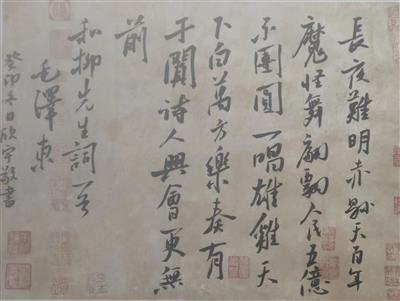 長夜難明赤縣天百年
魔怪舞翩飄人民五億
不團圓一唱雄雞天
下白萬方樂奏有
于闐詩人興會更無
前
和柳先生詞
毛澤東
癸卯冬日欣宇敬書